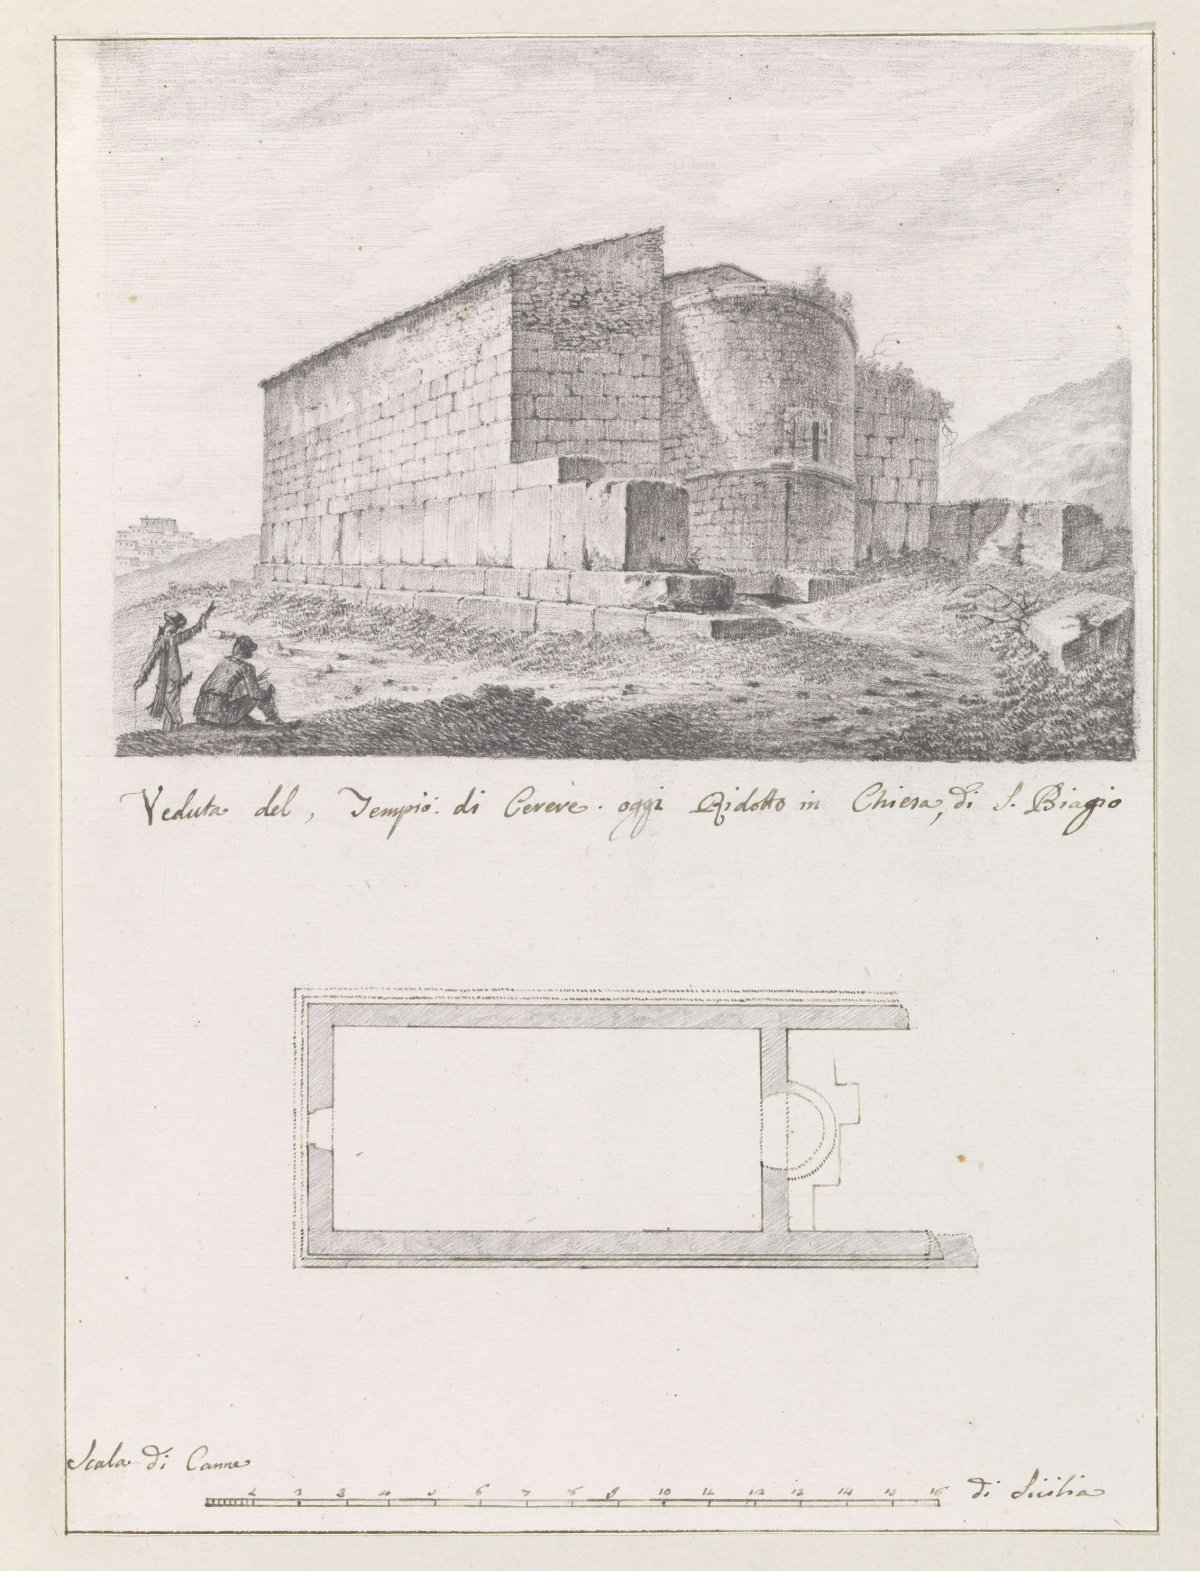 Veduta del, Tempio: di Cerere. oggi Ridotto in Chiesa, di S. Biagio
Scala di Canne
1 2 3 4 5 6 7 8 9 10 11 12 13 14 15 16 di Sicilia